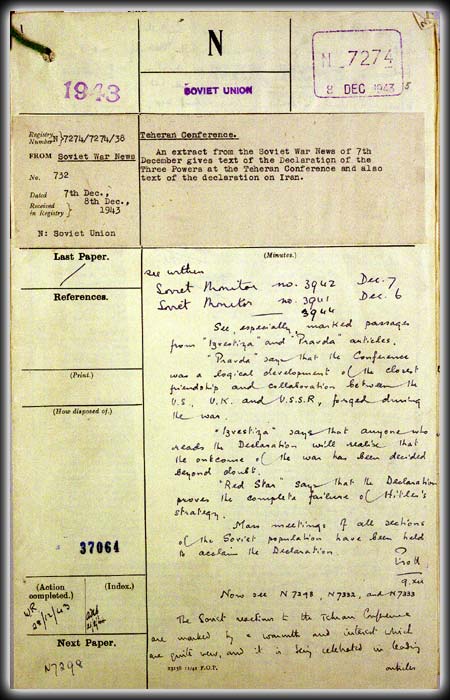 N
N 7274
8 DEC 1943
1943
SOVIET UNION
Registry Number } N 7274/7274/38
FROM Soviet War News
No. 732
Dated 7th Dec.,
Received in Registry } 8th Dec., 1943
N: Soviet Union
Teheran Conference.
An extract from the Soviet War News of 7th
December gives text of the Declaration of the
Three Powers at the Teheran Conference and also
text of the declaration on Iran.
Last Paper.
References.
(Print.)
(How disposed of.)
37064
(Action completed.)
(Index.)
28/12/43
Next Paper.
N7298
(Minutes.)
see within
Soviet Monitor no. 3942 Dec. 7
Soviet Monitor no. 3941 Dec. 6
3944
See, especially, marked passages
from "Izvestiza" and "Pravda" articles.
"Pravda" says that the Conference
was a logical development of the closest
friendship and collaboration between the
U.S., U.K. and U.S.S.R, forged during
the war.
"Izvestiza" says that anyone who
reads the Declaration will realise that
the outcome of the war has been decided
beyond doubt.
"Red Star" says that the Declaration
proves the complete failure of Hitler's
strategy.
Mass meetings of all sections
of the Soviet population have been held
to acclaim the Declaration.
9.xii
Now see N7248, N7332, and N7333
The Soviet reactions to the Tehran Conference
are marked by a warmth and interest which
are quite new, and it is being celebrated in leading
articles
F.O.P.